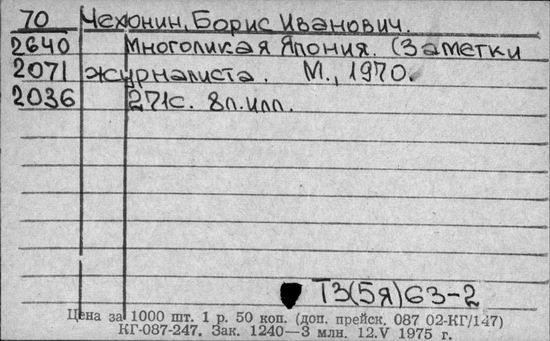 70 Чехонин, Борис Иванович.
2640 Многоликая Япония. (Заметки
2071 журналиста. М., 1970.
2036 271с. 8л.илл.
Т3(5я)63-2
Цена за 1000 шт. 1 р. 50 коп. (доп. прейск. 087 02-КГ/147)
КГ-087-247. Зак. 1240—3 млн. 12.V 1975 г.